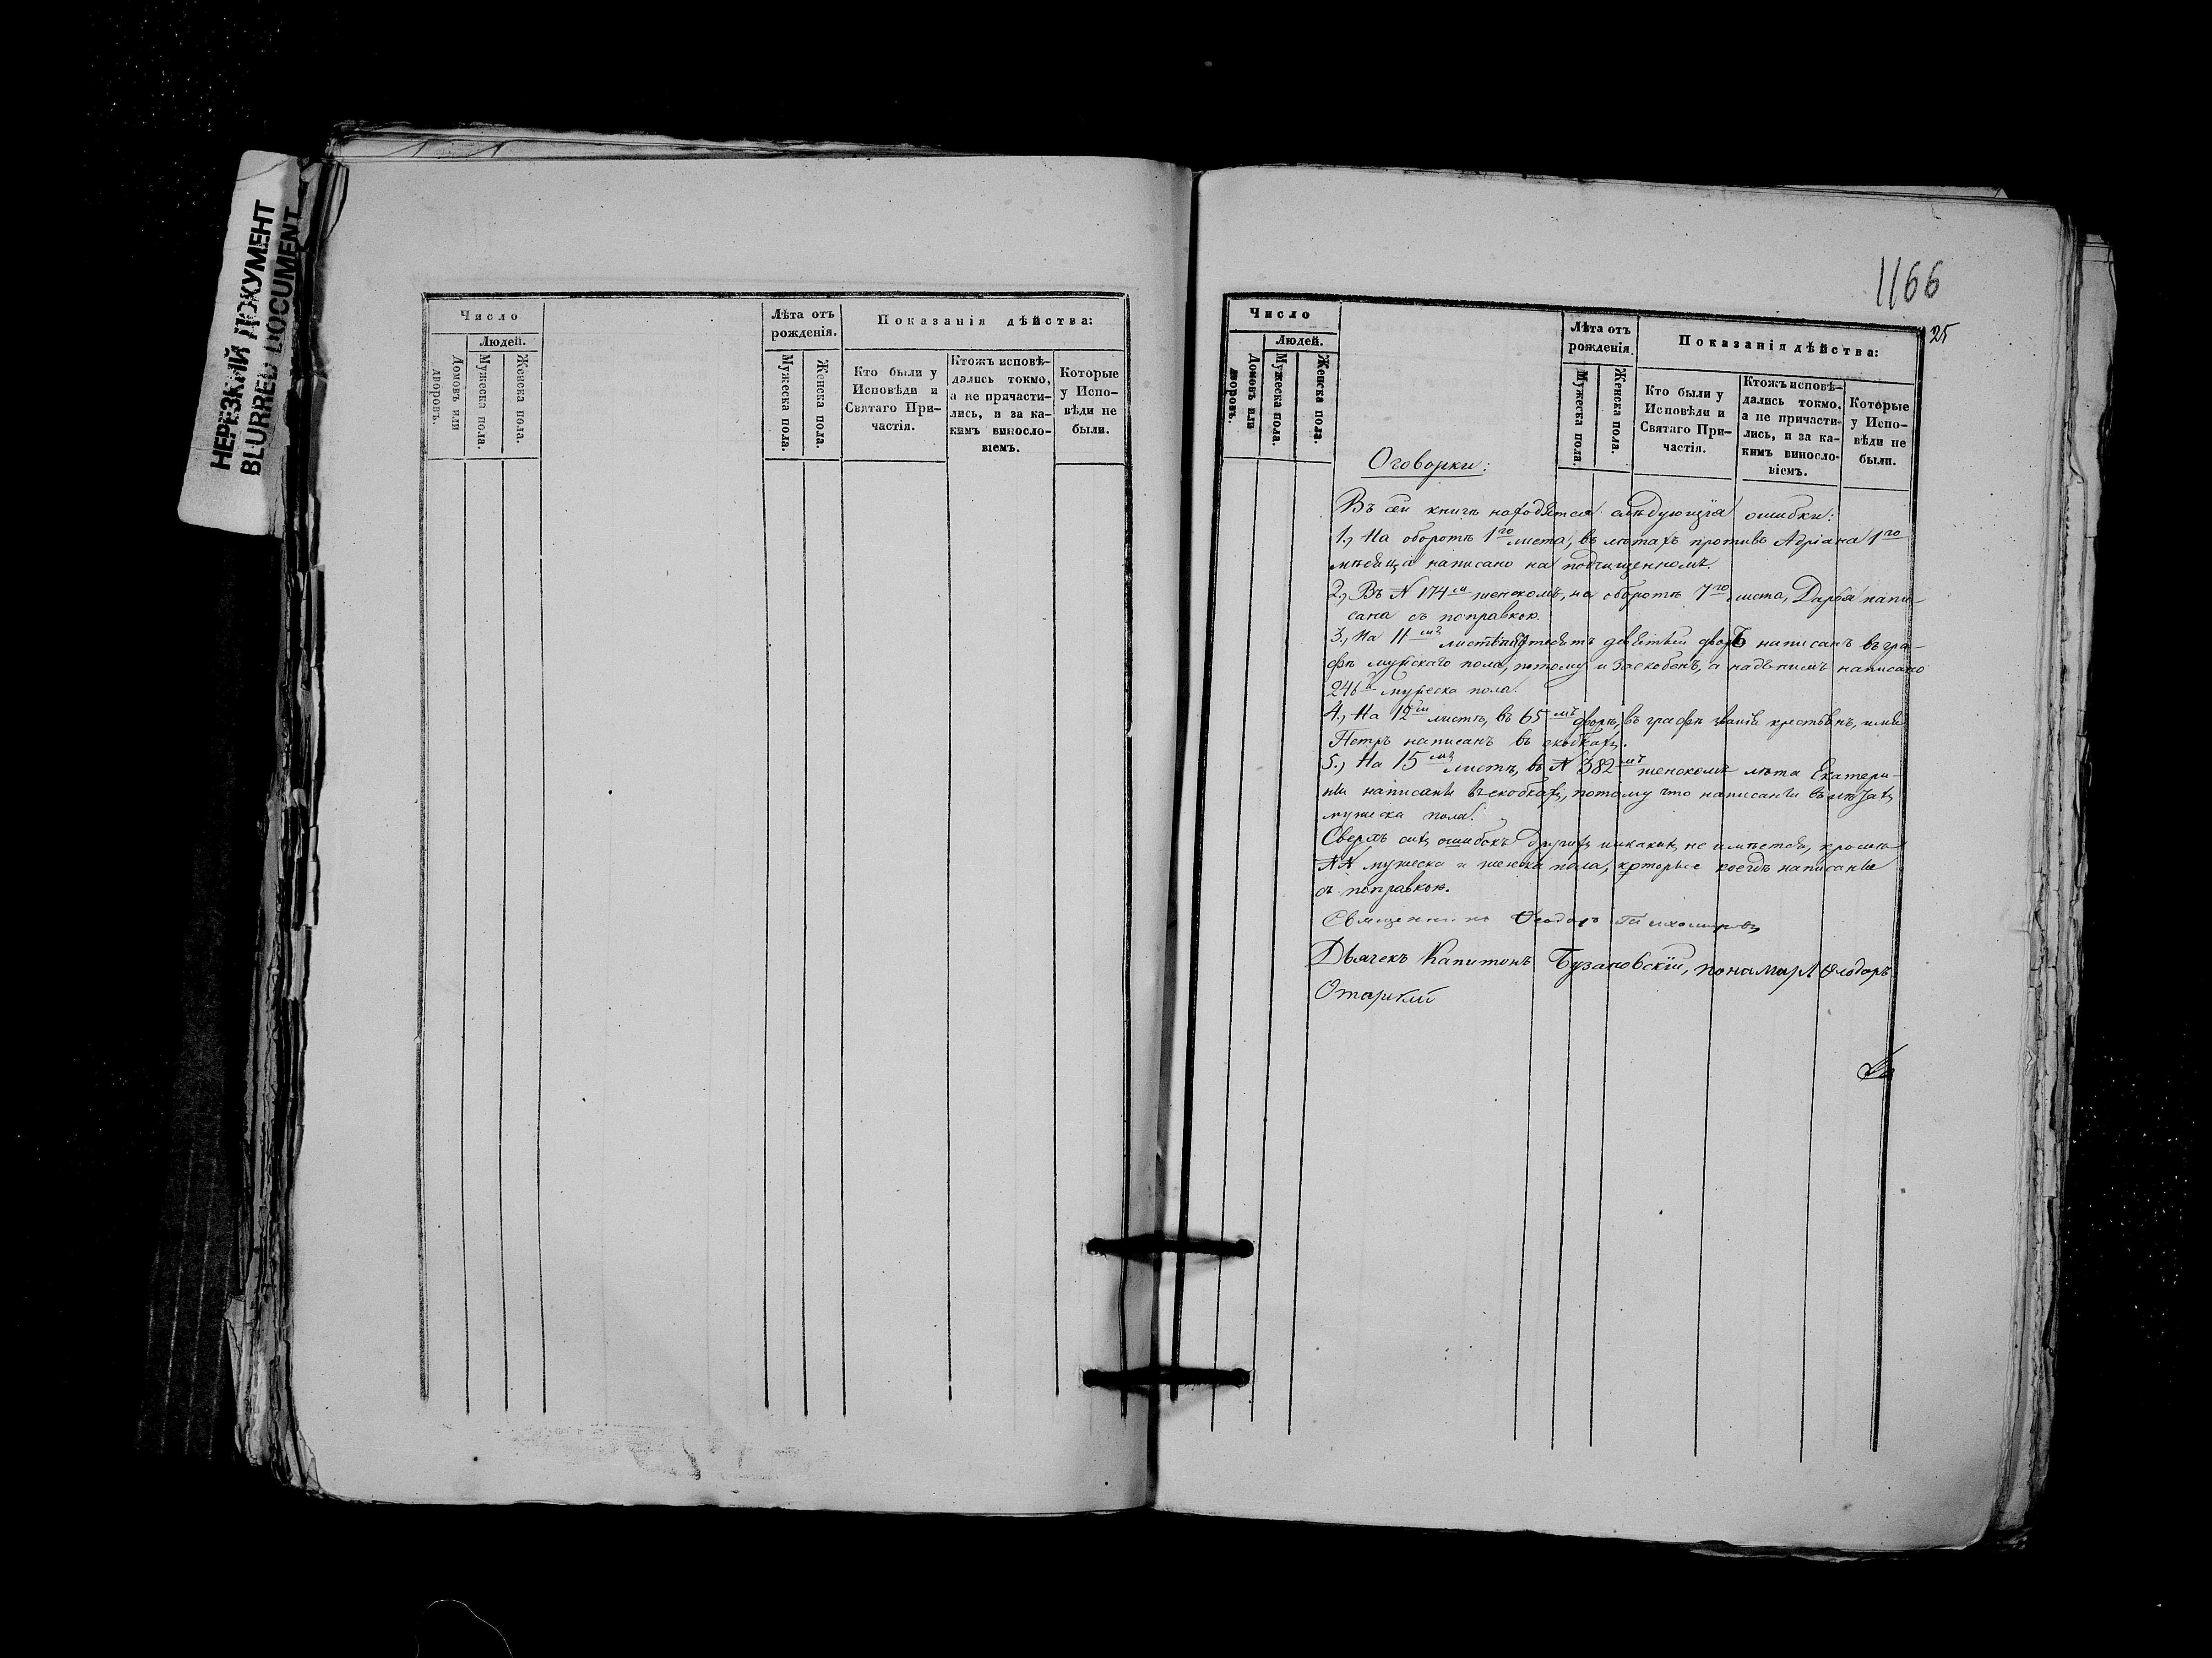 НЕРЕЗКИЙ ДОКУМЕНТ
BLURRED DOCUMENT
Число
Людей.
Домовъ или дворовъ.
Мужеска пола.
Женска пола.
Лѣта отъ
рожденія.
Мужеска пола.
Женска пола.
Показанія дѣйства:
Кто были у
Исповѣди и
Святаго При-
частія.
Ктожъ исповѣ-
дались токмо,
а не причасти-
лись, и за ка-
кимъ винosло-
віемъ.
Которые
у Испо-
вѣди не
были.
1166
25
Число
Людей.
Домовъ или дворовъ.
Мужеска пола.
Женска пола.
Лѣта отъ
рожденія.
Мужеска пола.
Женска пола.
Показанія дѣйства:
Кто были у
Исповѣди и
Святаго При-
частія.
Ктожъ исповѣ-
дались токмо,
а не причасти-
лись, и за ка-
кимъ винoсло-
віемъ.
Которые
у Испо-
вѣди не
были.
Оговорки:
Въ сей книгѣ находятся слѣдующія ошибки:
1., На оборотѣ 1го листа, въ лѣтахъ противъ Адріана 1го
мѣсяца написано на подчищенномъ.
2., Въ N 174мъ женскомъ, на оборотѣ 7го листа, Дарья напи-
сана съ поправкою.
3., На 11мъ листѣ девятый дворъ написанъ въ гра-
фѣ мужскаго пола, потому и заскобенъ, а надъ нимъ написано
246й мужеска пола.
4., На 12мъ листѣ, въ 65мъ дворѣ, въ графѣ званія крестьянъ, имя
Петръ написанъ въ скобкахъ.
5., На 15мъ листѣ, въ N 382мъ женскомъ лѣта Екатери-
ны написаны въ скобкахъ, потому что написаны въ лѣтахъ
мужеска пола.
Сверхъ сихъ ошибокъ другихъ никакихъ не имѣется, кромѣ
NN мужеска и женска пола, которые коегдѣ написаны
съ поправкою.
Священникъ Ѳеодоръ Тихомировъ
Дьячекъ Капитонъ Бузаковскій, понамарь Ѳеодоръ